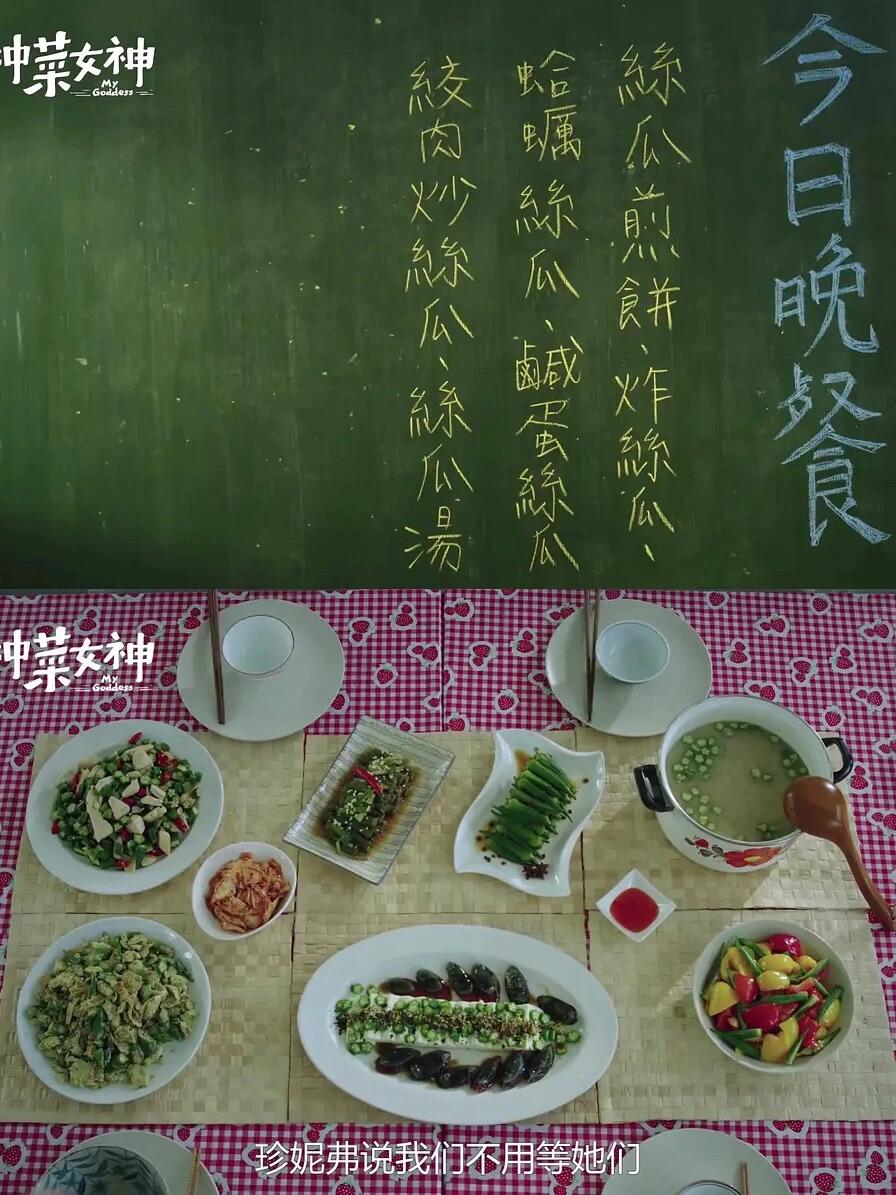 种菜女神
My
Goddess
今日晚餐
絲瓜煎餅、炸絲瓜、
蛤蠣絲瓜、鹹蛋絲瓜
絞肉炒絲瓜、絲瓜湯
种菜女神
My
Goddess
珍妮弗说我们不用等她们